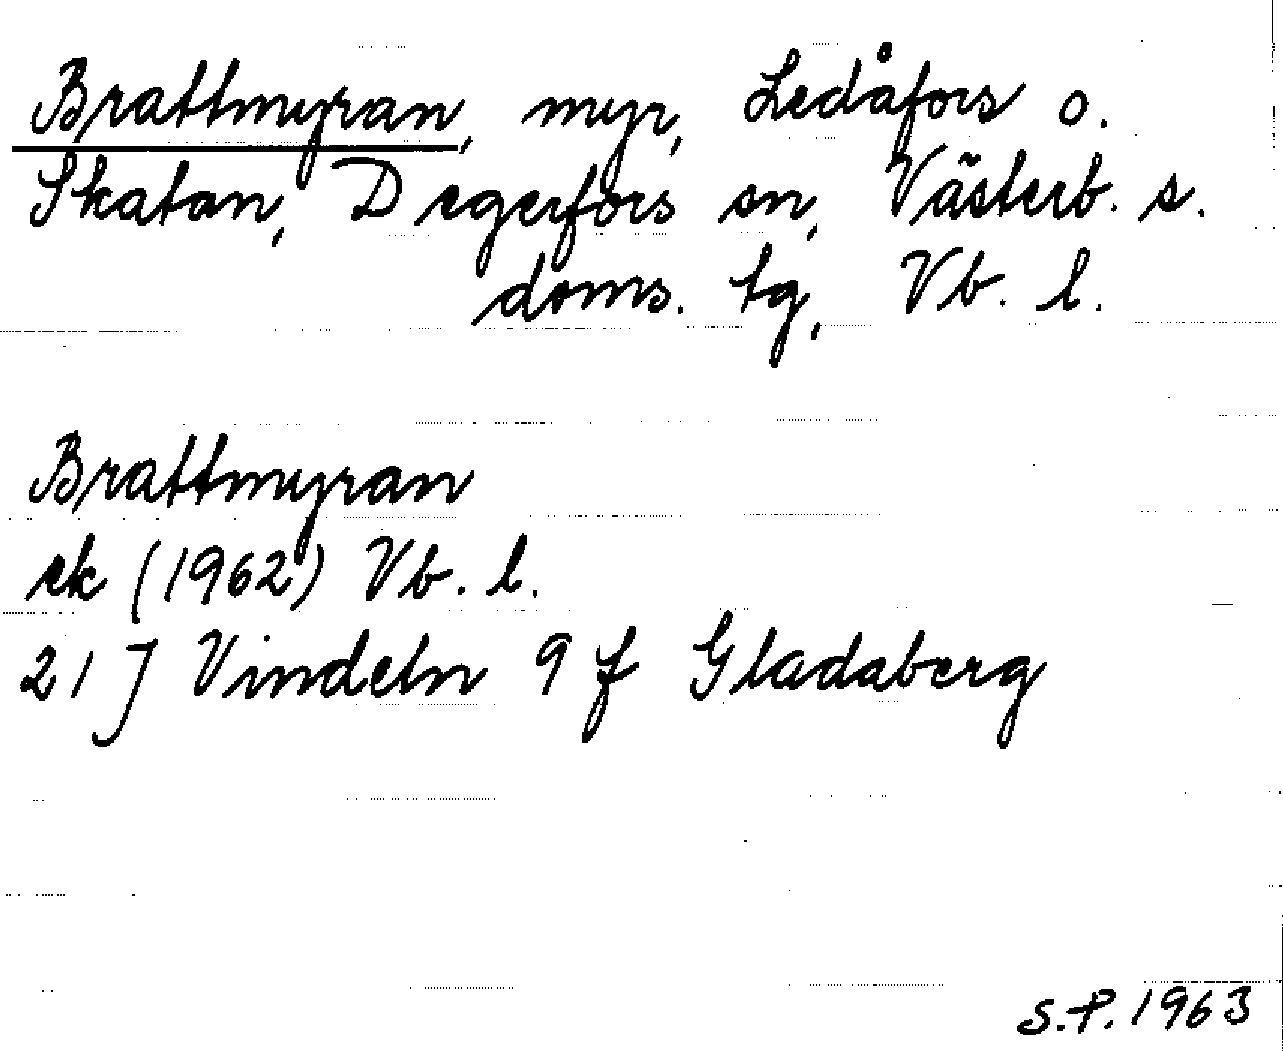 Brattmyran, myr, Ledåfors o.
Skatan, Degerfors sn, Västerb. s.
doms. tg, Vb. l.
Brattmyran
ek (1962) Vb. l.
21 J Vindeln 9 f Gladaberg
S.P. 1963